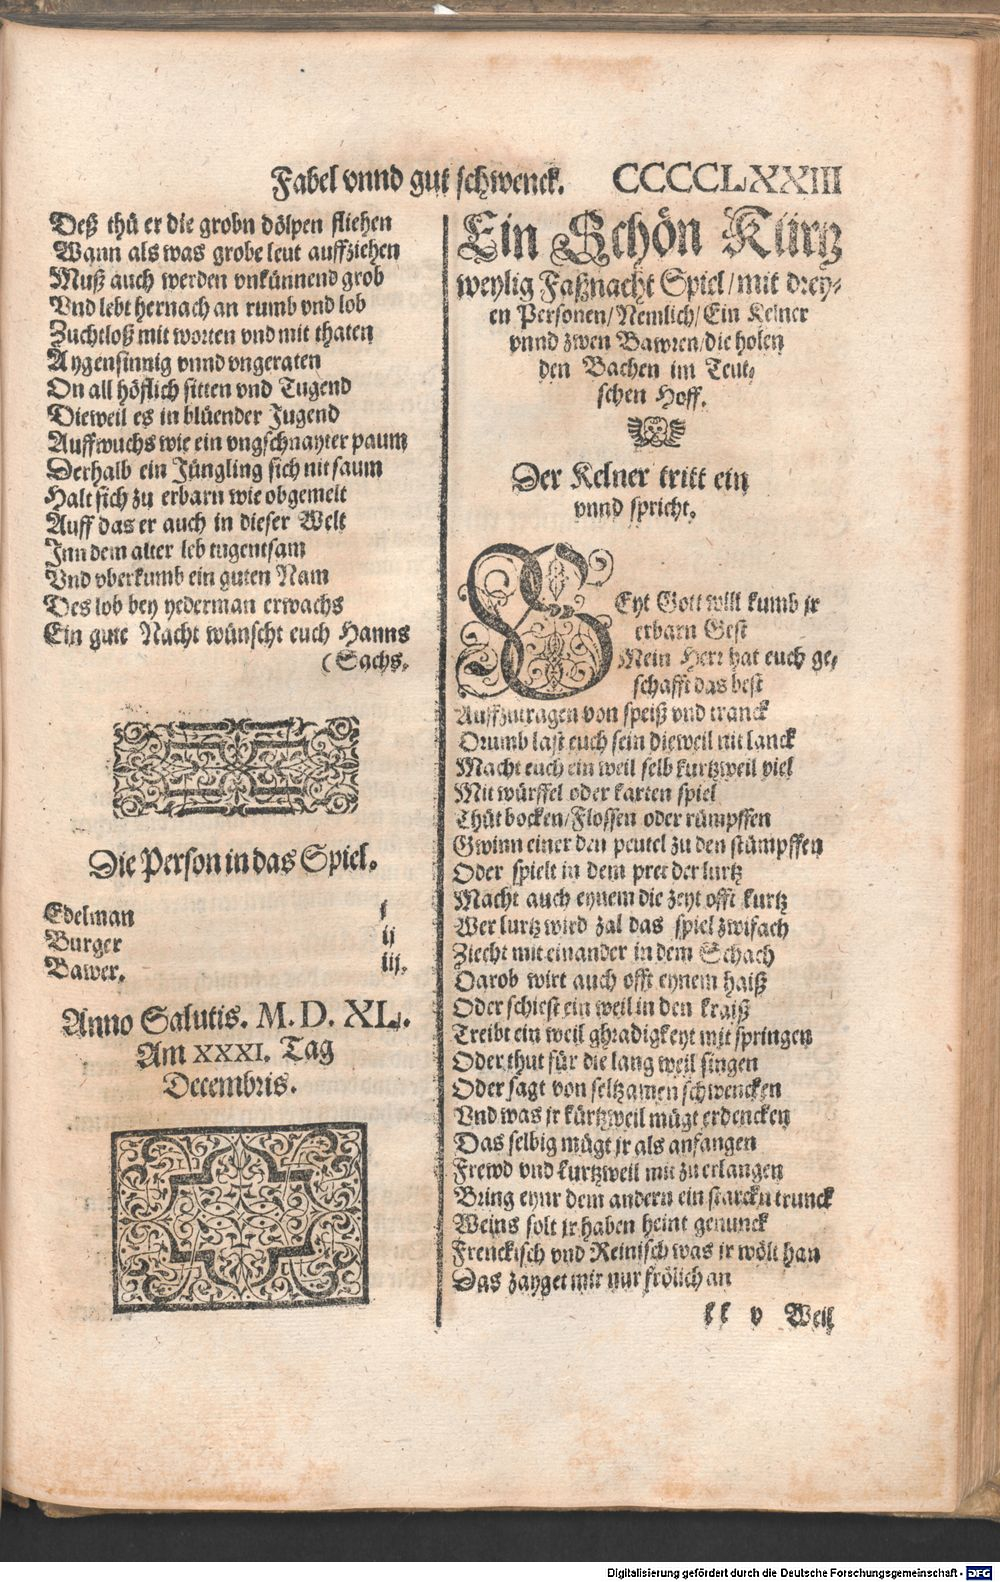 Fabel vnnd gut schwenck. CCCCCLXXIII
Deß thů er die grobn dölpen fliehen
Wann als was grobe leut auffziehen
Muß auch werden vnkünnend grob
Vnd lebt hernach an rumb vnd lob
Zuchtloß mit worten vnd mit thaten
Aygensinnig vnnd vngeraten
On all höflich sitten vnd Tugend
Dieweil es in blüender Jugend
Auffwuchs wie ein vngschnayter paum
Derhalb ein Jüngling sich nit saum
Halt sich zu erbarn wie obgemelt
Auff das er auch in dieser Welt
Inn dem alter leb tugentsam
Vnd vberkumb ein guten Nam
Des lob bey yederman erwachs
Ein gute Nacht wünscht euch Hanns
(Sachs.
Die Person in das Spiel.
Edelman j
Burger ij
Bawer. iij.
Anno Salutis. M. D. XL.
Am XXXI. Tag
Decembris.
Ein Schön Kurtz
weylig Faßnacht Spiel / mit drey⸗
en Personen / Nemlich / Ein Kelner
vnnd zwen Bawren / die holen
den Bachen im Teut⸗
schen Hoff.
Der Kelner tritt ein
vnnd spricht.
SEyt Gott will kumb jr
erbarn Gest
Mein Herr hat euch ge⸗
schafft das best
Auffzutragen von speiß vnd tranck
Drumb last euch sein dieweil nit lanck
Macht euch ein weil selb kurtzweil viel
Mit würffel oder karten spiel
Thüt bocken / Flossen oder rümpffen
Gwinn einer den peutel zu den stümpffen
Oder spielt in dem pret der lurtz
Macht auch eynem die zeyt offt kurtz
Wer lurtz wird zal das spiel zwifach
Ziecht mit einander in dem Schach
Darob wirt auch offt eynem haiß
Oder schiest ein weil in den kraiß
Treibt ein weil ghradigkeyt mit springen
Oder thut für die lang weil singen
Oder sagt von seltzamen schwencken
Vnd was jr kürtzweil mügt erdencken
Das selbig mügt jr als anfangen
Frewd vnd kurtzweil mit zu erlangen
Bring eynr dem andern ein starckn trunck
Weins solt jr haben heint genunck
Frenckisch vnd Reinisch was jr wölt han
Das zayget mir nur frölich an
kk v Weil
Digitalisierung gefördert durch die Deutsche Forschungsgemeinschaft - DFG